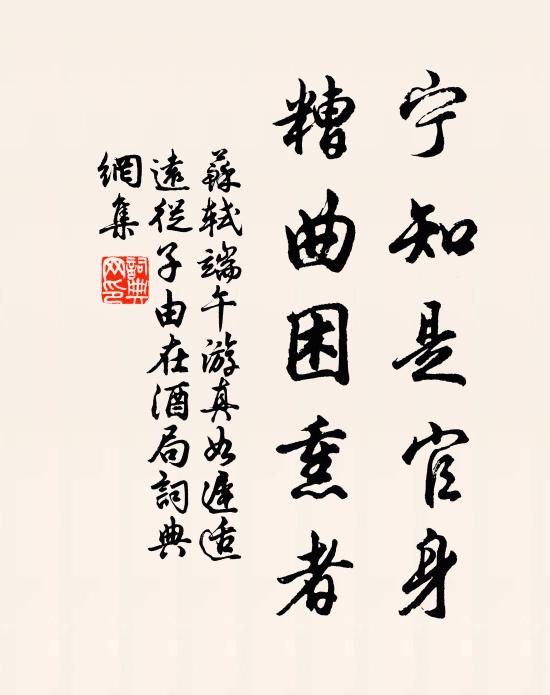 宁知是官身
糟曲困熏者
蘇軾端午游真如遲适
遠從子由在酒局詞典
網集
詞典网印